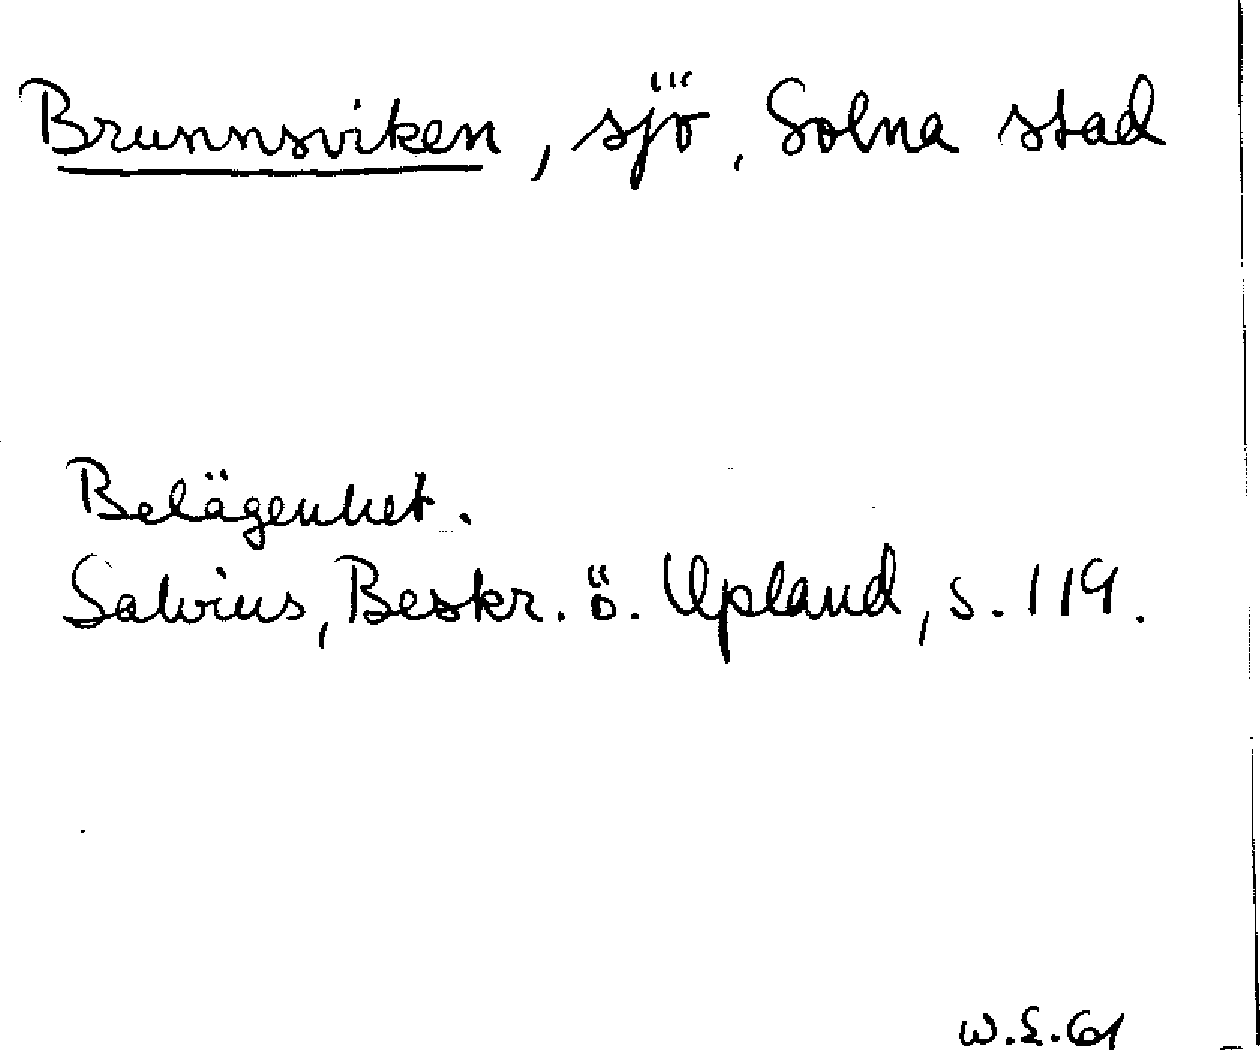 Brunnsviken, sjö, Solna stad
Belägenhet.
Salvius, Beskr. ö. Upland, s. 119.
W.S.61